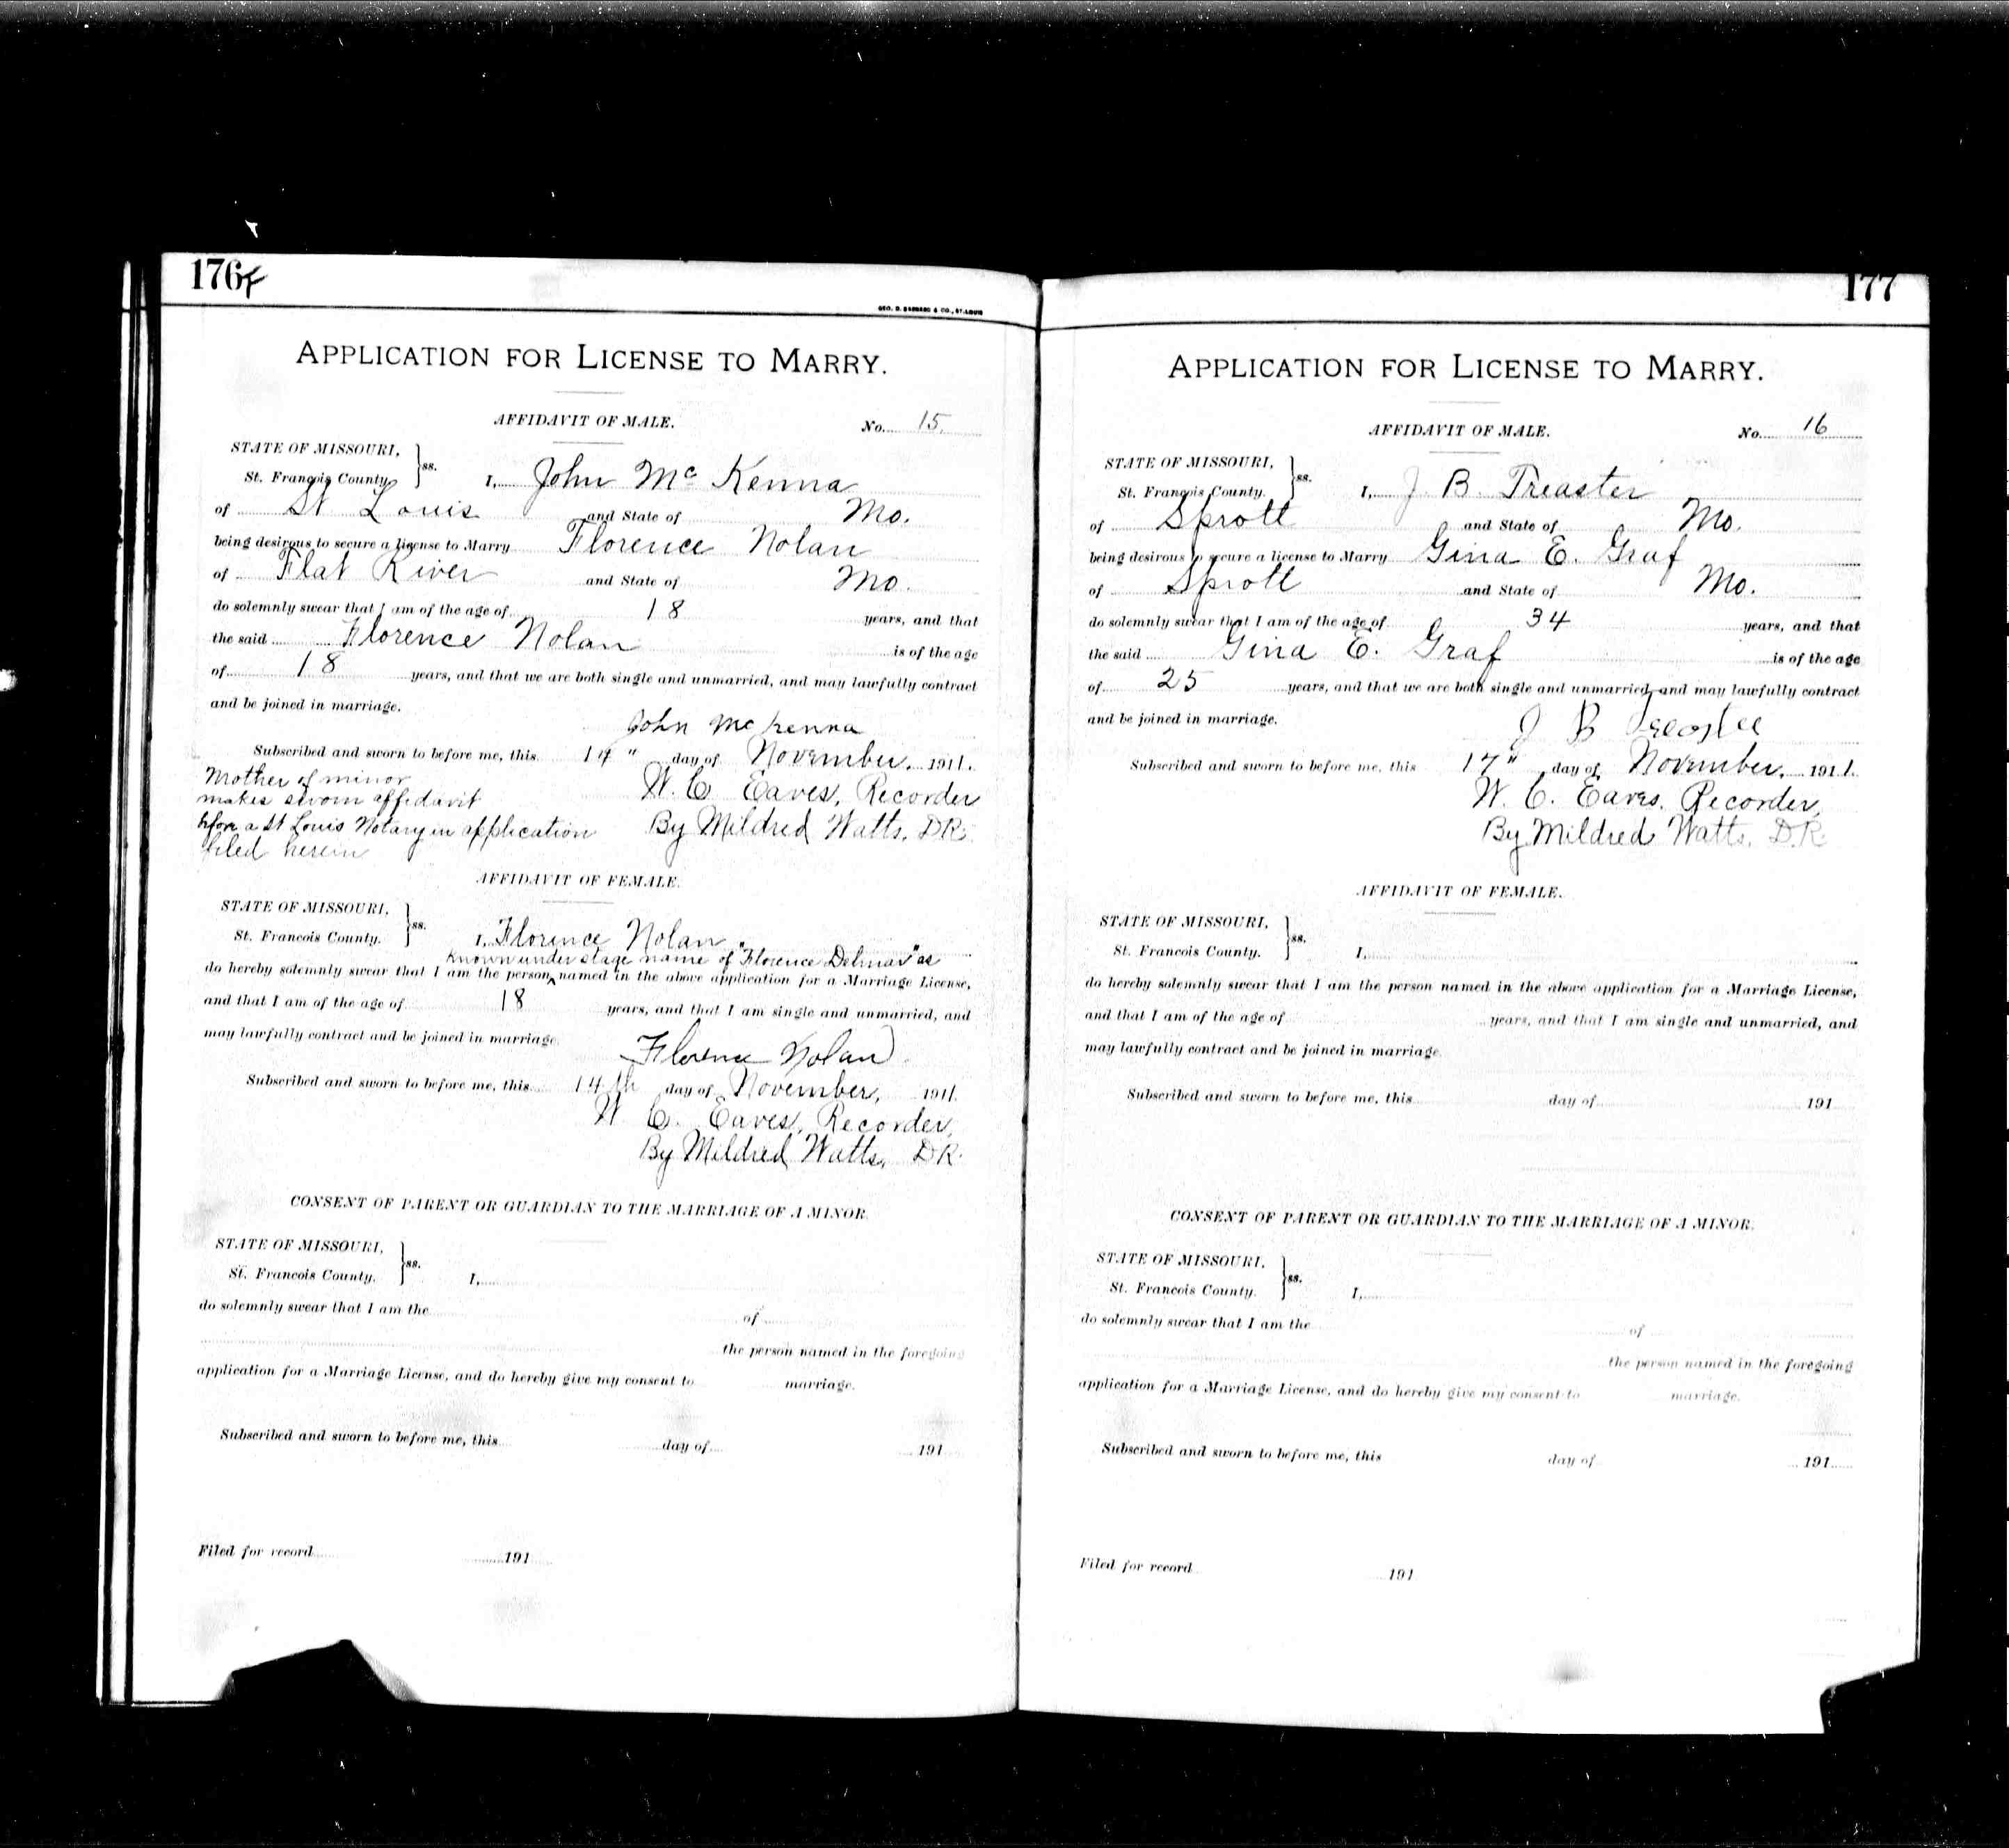 176
GEO. D. BARNARD & CO., ST. LOUIS
APPLICATION FOR LICENSE TO MARRY.
AFFIDAVIT OF MALE.
No. 15.
STATE OF MISSOURI,
St. Francois County. } ss. I, John Mc Kenna
of St Louis and State of Mo.
being desirous to secure a license to Marry Florence Nolan
of Flat River and State of Mo.
do solemnly swear that I am of the age of 18 years, and that
the said Florence Nolan is of the age
of 18 years, and that we are both single and unmarried, and may lawfully contract
and be joined in marriage.
John McKenna
Subscribed and sworn to before me, this 14 " day of November, 1911.
W. C Eaves, Recorder
By Mildred Watts, D.R.
Mother of minor
makes sworn affidavit
before a St Louis Notary in application
filed herein
AFFIDAVIT OF FEMALE.
STATE OF MISSOURI,
St. Francois County. } ss. I, Florence Nolan
known under stage name of "Florence Delmar" as
do hereby solemnly swear that I am the person ^ named in the above application for a Marriage License,
and that I am of the age of 18 years, and that I am single and unmarried, and
may lawfully contract and be joined in marriage.
Florence Nolan
Subscribed and sworn to before me, this 14th day of November, 1911.
W C. Eaves, Recorder,
By Mildred Watts, D.R.
CONSENT OF PARENT OR GUARDIAN TO THE MARRIAGE OF A MINOR.
STATE OF MISSOURI,
St. Francois County. } ss. I,
do solemnly swear that I am the of
the person named in the foregoing
application for a Marriage License, and do hereby give my consent to marriage.
Subscribed and sworn to before me, this day of 191
Filed for record 191
177
APPLICATION FOR LICENSE TO MARRY.
AFFIDAVIT OF MALE.
No. 16
STATE OF MISSOURI,
St. Francois County. } ss. I, J. B. Treaster
of Sprott and State of Mo.
being desirous to secure a license to Marry Gina E. Graf
of Sprott and State of Mo.
do solemnly swear that I am of the age of 34 years, and that
the said Gina E. Graf is of the age
of 25 years, and that we are both single and unmarried, and may lawfully contract
and be joined in marriage.
J B
Subscribed and sworn to before me, this 17" day of November, 1911.
W. C. Eaves, Recorder,
By Mildred Watts, D.R.
AFFIDAVIT OF FEMALE.
STATE OF MISSOURI,
St. Francois County. } ss. I,
do hereby solemnly swear that I am the person named in the above application for a Marriage License,
and that I am of the age of years, and that I am single and unmarried, and
may lawfully contract and be joined in marriage.
Subscribed and sworn to before me, this day of 191
CONSENT OF PARENT OR GUARDIAN TO THE MARRIAGE OF A MINOR.
STATE OF MISSOURI,
St. Francois County. } ss. I,
do solemnly swear that I am the of
the person named in the foregoing
application for a Marriage License, and do hereby give my consent to marriage.
Subscribed and sworn to before me, this day of 191
Filed for record 191